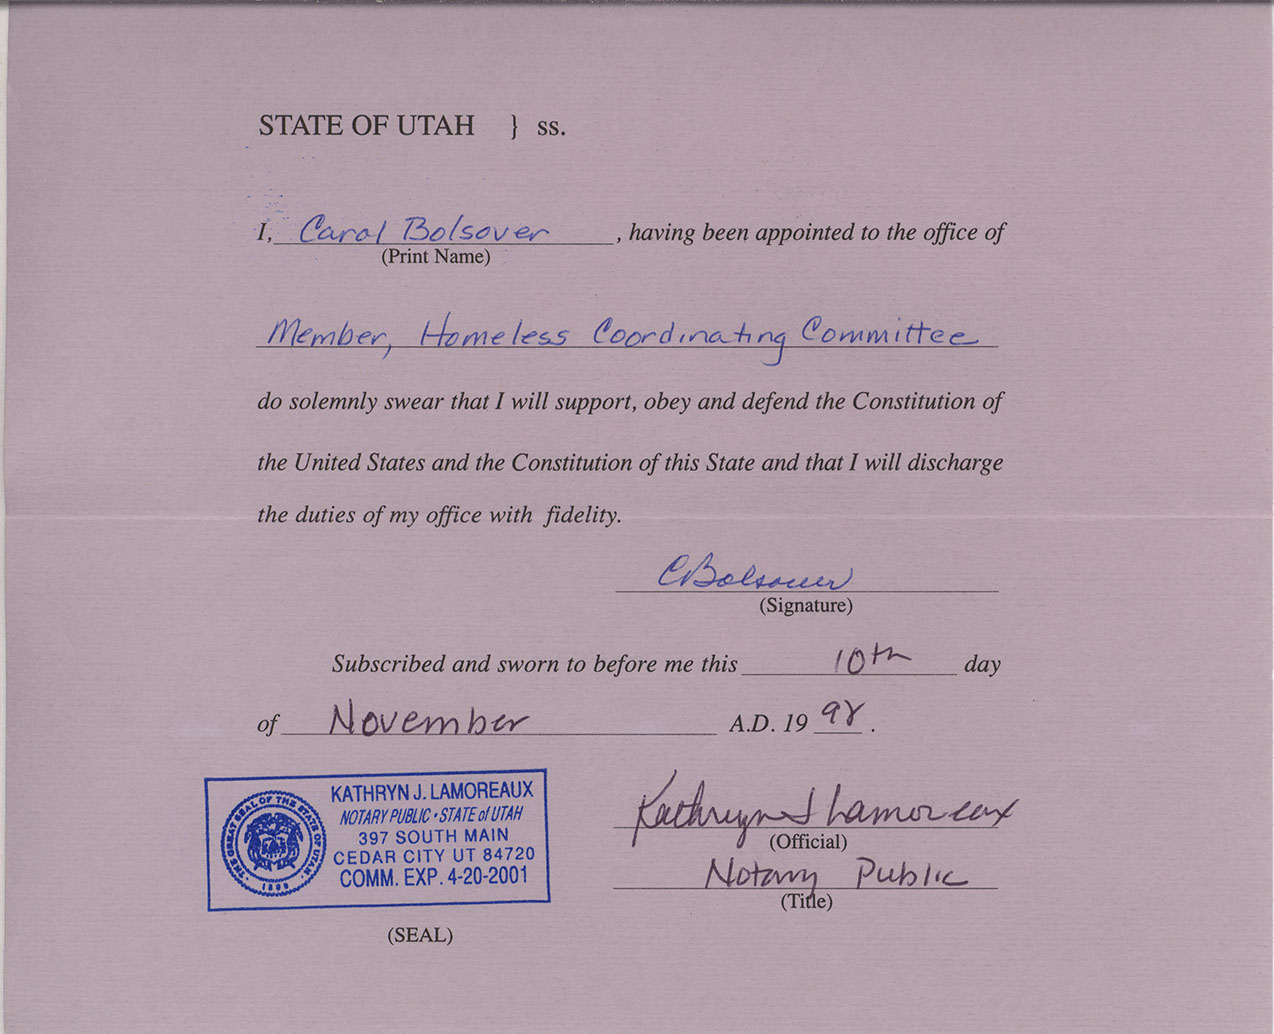 STATE OF UTAH } ss.
I, Carol Bolsover , having been appointed to the office of
(Print Name)
Member, Homeless Coordinating Committee
do solemnly swear that I will support, obey and defend the Constitution of
the United States and the Constitution of this State and that I will discharge
the duties of my office with fidelity.
CBolsover
(Signature)
Subscribed and sworn to before me this 10th day
of November A.D. 19 98 .
KATHRYN J. LAMOREAUX
NOTARY PUBLIC • STATE of UTAH
397 SOUTH MAIN
CEDAR CITY UT 84720
COMM. EXP. 4-20-2001
THE GREAT SEAL OF THE STATE OF UTAH
1896
(SEAL)
Kathryn J Lamoreaux
(Official)
Notary Public
(Title)